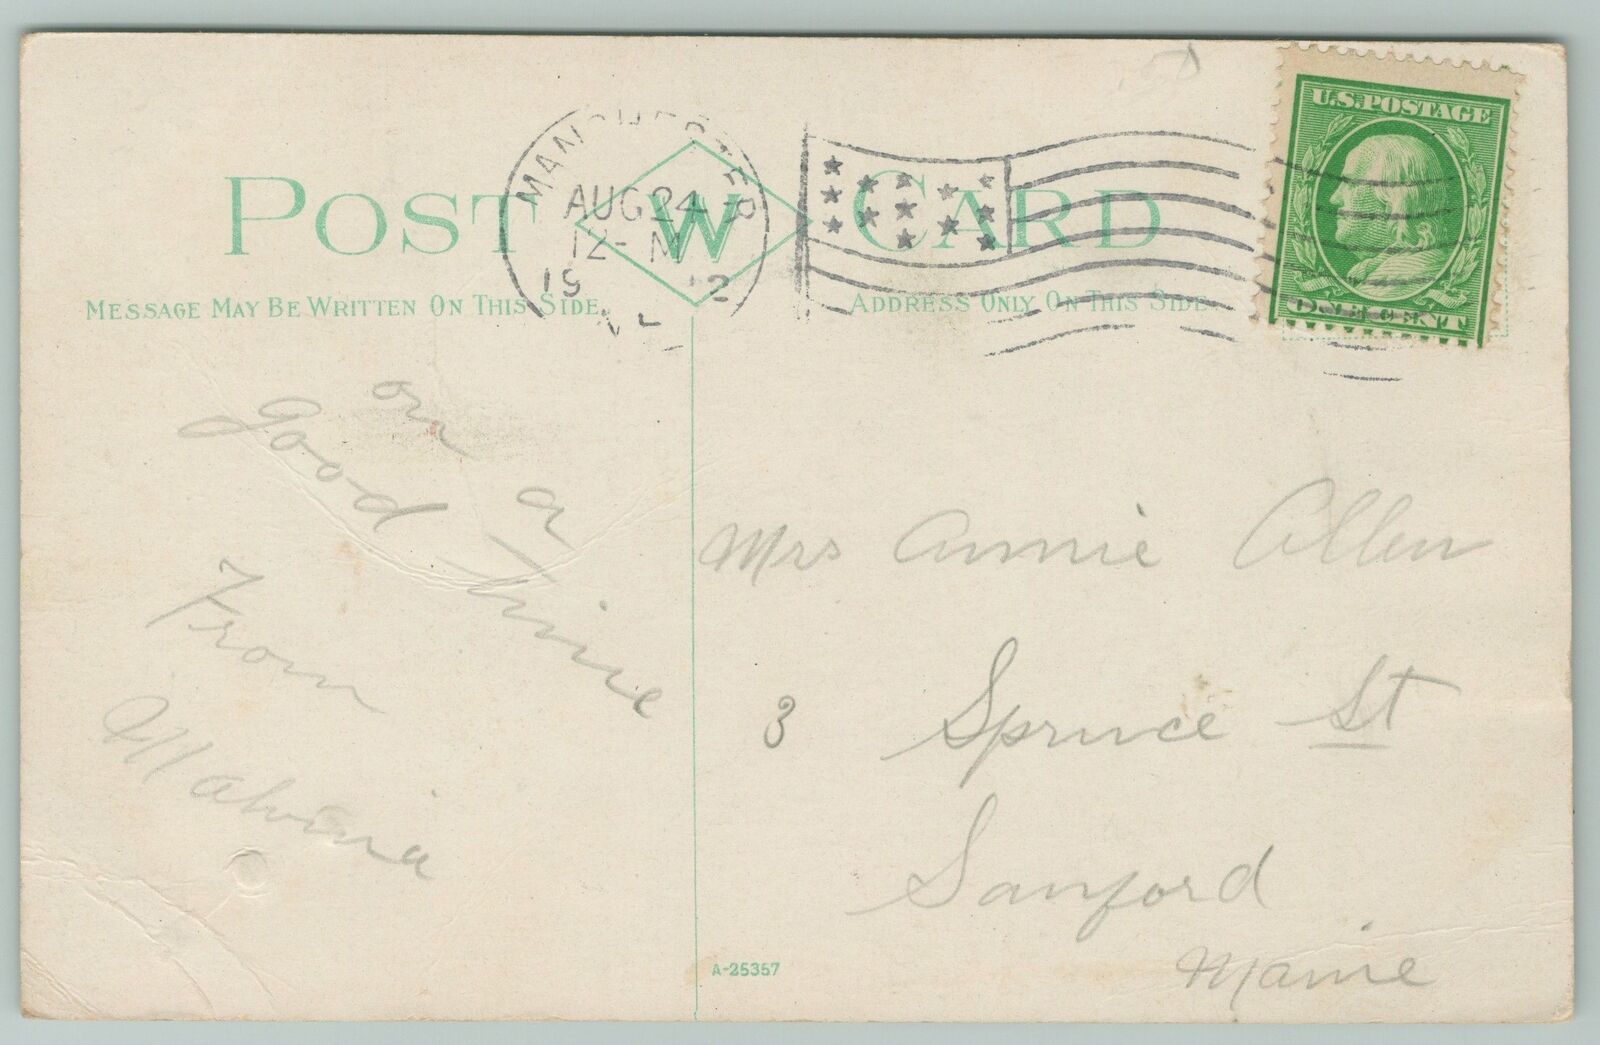 U.S.POSTAGE
ONE CENT
MANCHESTER
AUG 24
12-M
1912
POST W CARD
MESSAGE MAY BE WRITTEN ON THIS SIDE
ADDRESS ONLY ON THIS SIDE
on a
good time
From
Malvina
Mrs Annie Allen
3 Spruce St
Sanford
Maine
A-25357